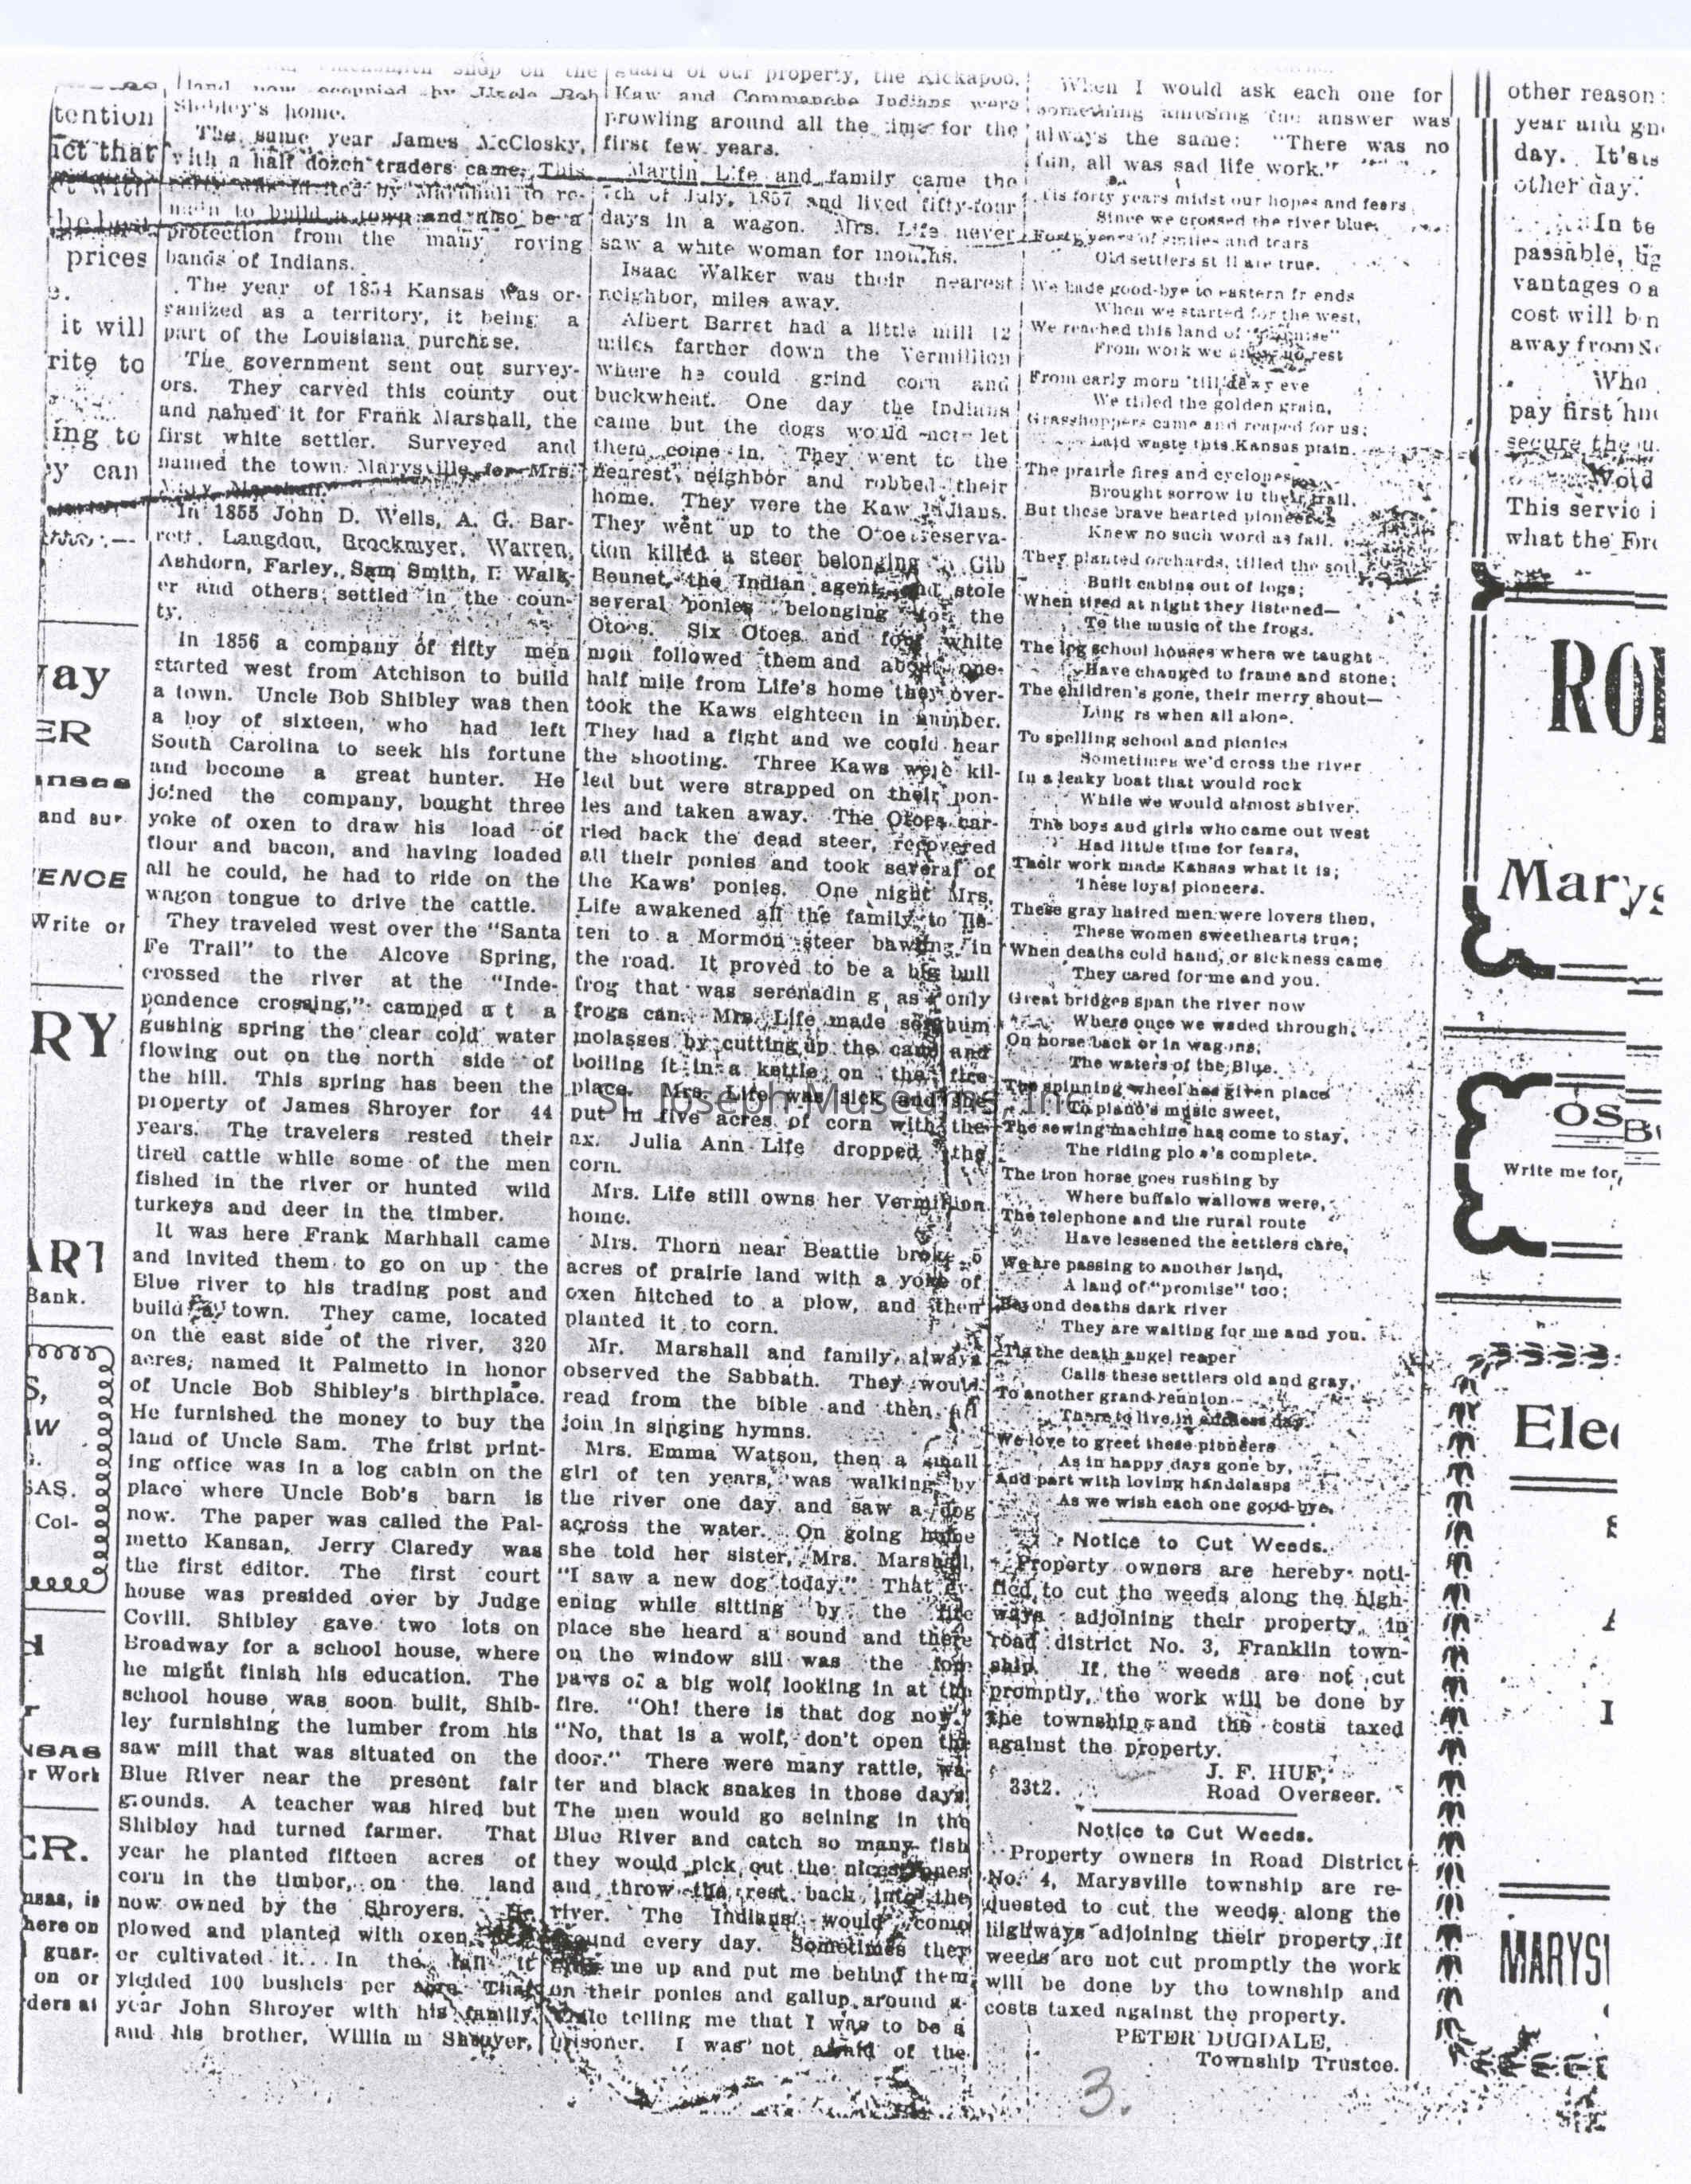 tention
ict that
prices
e.
it will
rite to
ing to
y can
ay
ER
ansas
and sur
ENCE
Write or
RY
ART
Bank.
S,
W
SAS.
Col-
NSAS
r Work
ER.
nsas, is
here on
guar-
on or
ders at
shop on the
land now occupied by Uncle Bob
Shibley's home.
The same year James McClosky,
with a half dozen traders came. This
party was invited by Marshall to re-
main to build a town and also be a
protection from the many roving
bands of Indians.
The year of 1854 Kansas was or-
ganized as a territory, it being a
part of the Louisiana purchase.
The government sent out survey-
ors. They carved this county out
and named it for Frank Marshall, the
first white settler. Surveyed and
named the town Marysville for Mrs.
Mary Marshall.
In 1855 John D. Wells, A. G. Bar-
rett, Langdon, Brockmyer, Warren,
Ashdorn, Farley, Sam Smith, I. Walk-
er and others settled in the coun-
ty.
In 1856 a company of fifty men
started west from Atchison to build
a town. Uncle Bob Shibley was then
a boy of sixteen, who had left
South Carolina to seek his fortune
and become a great hunter. He
joined the company, bought three
yoke of oxen to draw his load of
flour and bacon, and having loaded
all he could, he had to ride on the
wagon tongue to drive the cattle.
They traveled west over the "Santa
Fe Trail" to the Alcove Spring,
crossed the river at the "Inde-
pendence crossing," camped at a
gushing spring the clear cold water
flowing out on the north side of
the hill. This spring has been the
property of James Shroyer for 44
years. The travelers rested their
tired cattle while some of the men
fished in the river or hunted wild
turkeys and deer in the timber.
It was here Frank Marhhall came
and invited them to go on up the
Blue river to his trading post and
build a town. They came, located
on the east side of the river, 320
acres, named it Palmetto in honor
of Uncle Bob Shibley's birthplace.
He furnished the money to buy the
land of Uncle Sam. The frist print-
ing office was in a log cabin on the
place where Uncle Bob's barn is
now. The paper was called the Pal-
metto Kansan, Jerry Claredy was
the first editor. The first court
house was presided over by Judge
Covill. Shibley gave two lots on
Broadway for a school house, where
he might finish his education. The
school house was soon built, Shib-
ley furnishing the lumber from his
saw mill that was situated on the
Blue River near the present fair
grounds. A teacher was hired but
Shibley had turned farmer. That
year he planted fifteen acres of
corn in the timber, on the land
now owned by the Shroyers. He
plowed and planted with oxen
or cultivated it. In the fall it
yielded 100 bushels per acre. That
year John Shroyer with his family
and his brother, William Shroyer,
guard of our property, the Kickapoo,
Kaw and Commanche Indians were
prowling around all the time for the
first few years.
Martin Life and family came the
7th of July, 1857 and lived fifty-four
days in a wagon. Mrs. Life never
saw a white woman for months.
Isaac Walker was their nearest
neighbor, miles away.
Albert Barret had a little mill 12
miles farther down the Vermillion
where he could grind corn and
buckwheat. One day the Indians
came but the dogs would not let
them come in. They went to the
nearest neighbor and robbed their
home. They were the Kaw Indians.
They went up to the Otoe reserva-
tion killed a steer belonging to Gib
Bennet, the Indian agent, and stole
several ponies belonging to the
Otoes. Six Otoes and four white
men followed them and about one-
half mile from Life's home they over-
took the Kaws eighteen in number.
They had a fight and we could hear
the shooting. Three Kaws were kil-
led but were strapped on their pon-
ies and taken away. The Otoes car-
ried back the dead steer, recovered
all their ponies and took several of
the Kaws' ponies. One night Mrs.
Life awakened all the family to lis-
ten to a Mormon steer bawling in
the road. It proved to be a big bull
frog that was serenading as only
frogs can. Mrs. Life made sorghum
molasses by cutting up the cane and
boiling it in a kettle on the fire
place. Mrs. Life was sick and she
put in five acres of corn with the
ax. Julia Ann Life dropped the
corn.
Mrs. Life still owns her Vermillion
home.
Mrs. Thorn near Beattie broke 5
acres of prairie land with a yoke of
oxen hitched to a plow, and then
planted it to corn.
Mr. Marshall and family always
observed the Sabbath. They would
read from the bible and then all
join in singing hymns.
Mrs. Emma Watson, then a small
girl of ten years, was walking by
the river one day and saw a dog
across the water. On going home
she told her sister, Mrs. Marshall,
"I saw a new dog today." That ev-
ening while sitting by the fire
place she heard a sound and there
on the window sill was the fore
paws of a big wolf looking in at the
fire. "Oh! there is that dog now."
"No, that is a wolf, don't open the
door." There were many rattle, wa-
ter and black snakes in those days.
The men would go seining in the
Blue River and catch so many fish
they would pick out the nicest ones
and throw the rest back into the
river. The Indians would come
around every day. Sometimes they
me up and put me behind them
on their ponies and gallup around a-
while telling me that I was to be a
prisoner. I was not afraid of the
When I would ask each one for
something amusing the answer was
always the same: "There was no
fun, all was sad life work."
'Tis forty years midst our hopes and fears
Since we crossed the river blue,
Forty years of smiles and tears
Old settlers st ll are true.
We bade good-bye to eastern fr ends
When we started for the west,
We reached this land of "promise"
From work we no rest
From early morn 'till dewy eve
We tilled the golden grain,
Grasshoppers came and reaped for us;
Laid waste this Kansas plain.
The prairie fires and cyclones
Brought sorrow in their trail.
But these brave hearted pioneers
Knew no such word as fail.
They planted orchards, tilled the soil
Built cabins out of logs;
When tired at night they listened—
To the music of the frogs.
The log school houses where we taught
Have changed to frame and stone;
The children's gone, their merry shout—
Ling rs when all alone.
To spelling school and picnics
Sometimes we'd cross the river
In a leaky boat that would rock
While we would almost shiver.
The boys and girls who came out west
Had little time for fears,
Their work made Kansas what it is;
These loyal pioneers.
These gray haired men were lovers then,
These women sweethearts true;
When deaths cold hand, or sickness came
They cared for me and you.
Great bridges span the river now
Where once we waded through,
On horse back or in wagons,
The waters of the Blue.
The spinning wheel has given place
To piano's music sweet,
The sewing machine has come to stay,
The riding plo w's complete.
The iron horse goes rushing by
Where buffalo wallows were,
The telephone and the rural route
Have lessened the settlers care,
We are passing to another land,
A land of "promise" too;
Beyond deaths dark river
They are waiting for me and you.
'Tis the death angel reaper
Calls these settlers old and gray,
To another grand reunion
There to live in endless day.
We love to greet these pioneers
As in happy days gone by,
And part with loving handclasps
As we wish each one good-bye.
Notice to Cut Weeds.
Property owners are hereby noti-
fied to cut the weeds along the high-
ways adjoining their property, in
road district No. 3, Franklin town-
ship. If the weeds are not cut
promptly, the work will be done by
the township and the costs taxed
against the property.
J. F. HUF,
33t2. Road Overseer.
Notice to Cut Weeds.
Property owners in Road District
No. 4, Marysville township are re-
quested to cut the weeds along the
highways adjoining their property. If
weeds are not cut promptly the work
will be done by the township and
costs taxed against the property.
PETER DUGDALE,
Township Trustee.
3.
other reason
year and
day. It's
other day.
In te
passable,
vantages
cost will
away from
Who
pay first
secure the
This servic
what the
RO
Marys
OS
Write me for
Elec
MARYS
St. Joseph Museums, Inc.